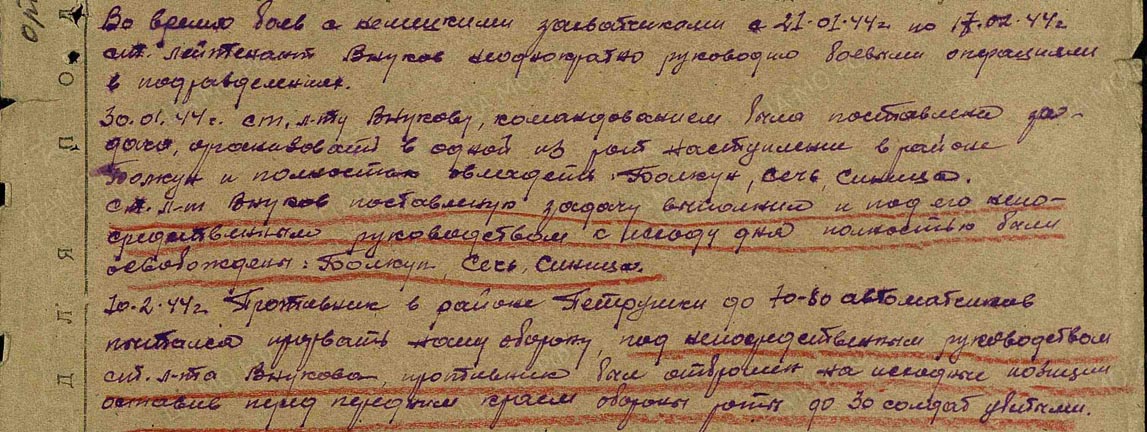 Во время боев с немецкими захватчиками с 21.01.44г по 17.02.44г
ст. лейтенант Внуков неоднократно руководил боевыми операциями
в подразделении.
30.01.44г. ст. л-ту Внукову, командованием была поставлена за-
дача, организовать в одной из рот наступление в районе
Болкун и полностью овладеть: Болкун, Сечь, Синица.
ст. л-т Внуков поставленную задачу выполнил и под его непо-
средственным руководством с исходу дня полностью были
освобождены: Болкун, Сечь, Синица.
10.2.44г Противник в районе Петрушки до 70-80 автоматчиков
пытался прорвать нашу оборону, под непосредственным руководством
ст. л-та Внукова, противник был отброшен на исходные позиции
оставив перед передним краем обороны роты до 30 солдат убитыми.
ДЛЯ ПОД